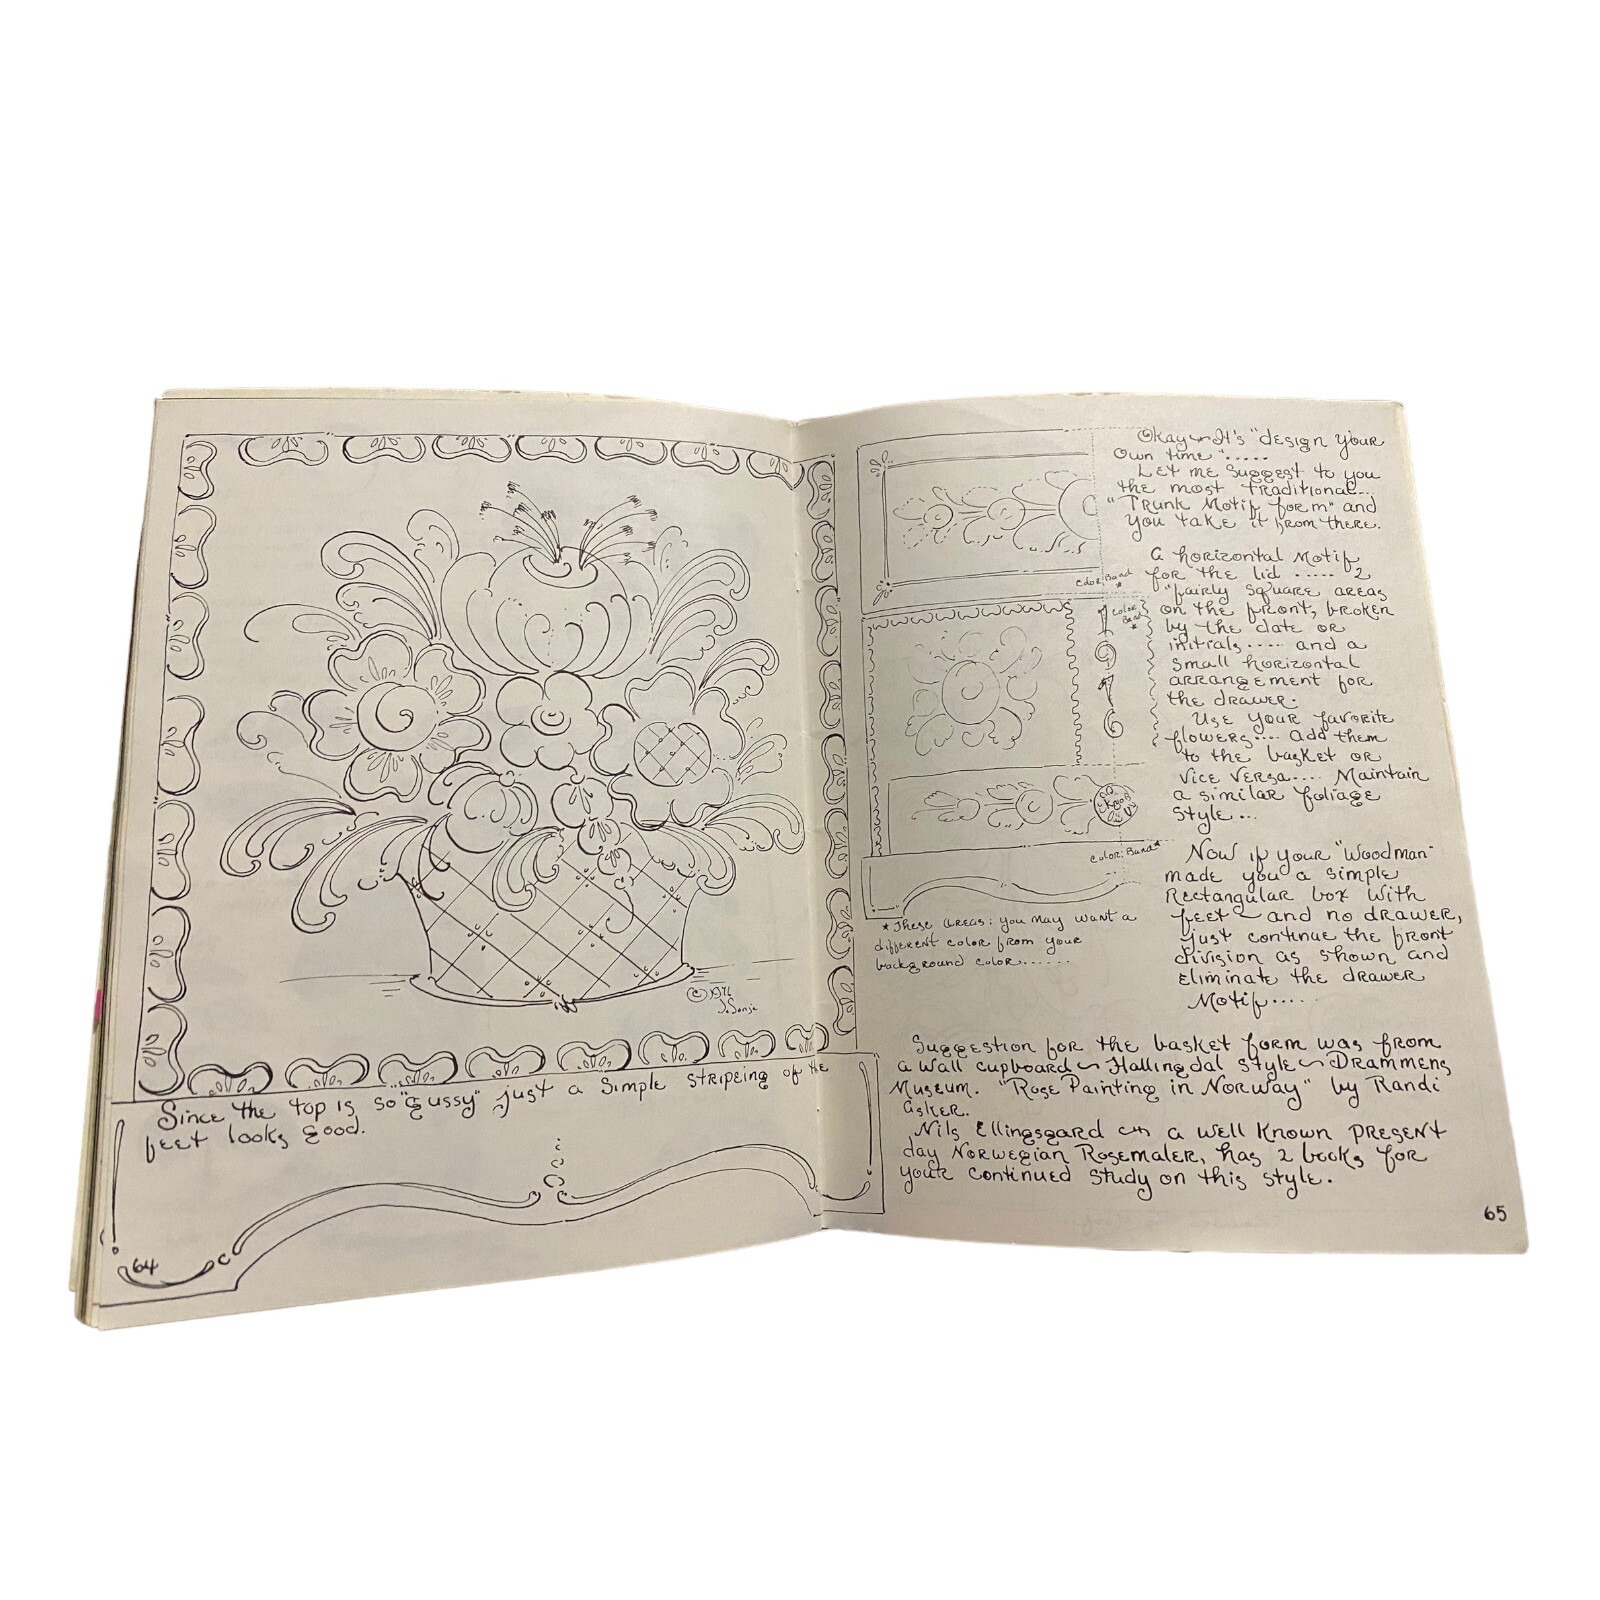 ©1976
S. Sonja
Since the top is so "gussy" just a simple stripeing of the
feet looks good.
64
Okay ~ It's "design your
own time".....
Let me suggest to you
the most traditional...
"Trunk Motif form" and
you take it from there.
A horizontal motif
for the lid ..... 2
"fairly square areas
on the front, broken
by the date or
initials..... and a
small horizontal
arrangement for
the drawer.
Use your favorite
flowers.... add them
to the basket or
vice versa.... Maintain
a similar foliage
style...
Now if your "woodman"
made you a simple
rectangular box with
feet ~ and no drawer,
just continue the front
division as shown and
eliminate the drawer
Motif.....
Color Band
*
Color
Band
*
1
9
7
6
Knob
Color Band*
* These areas: you may want a
different color from your
background color......
Suggestion for the basket form was from
a wall cupboard ~ Hallingdal style ~ Drammens
Museum. "Rose Painting in Norway" by Randi
Asker.
Nils Ellingsgard ~ a well known present
day Norwegian Rosemaler, has 2 books for
your continued study on this style.
65